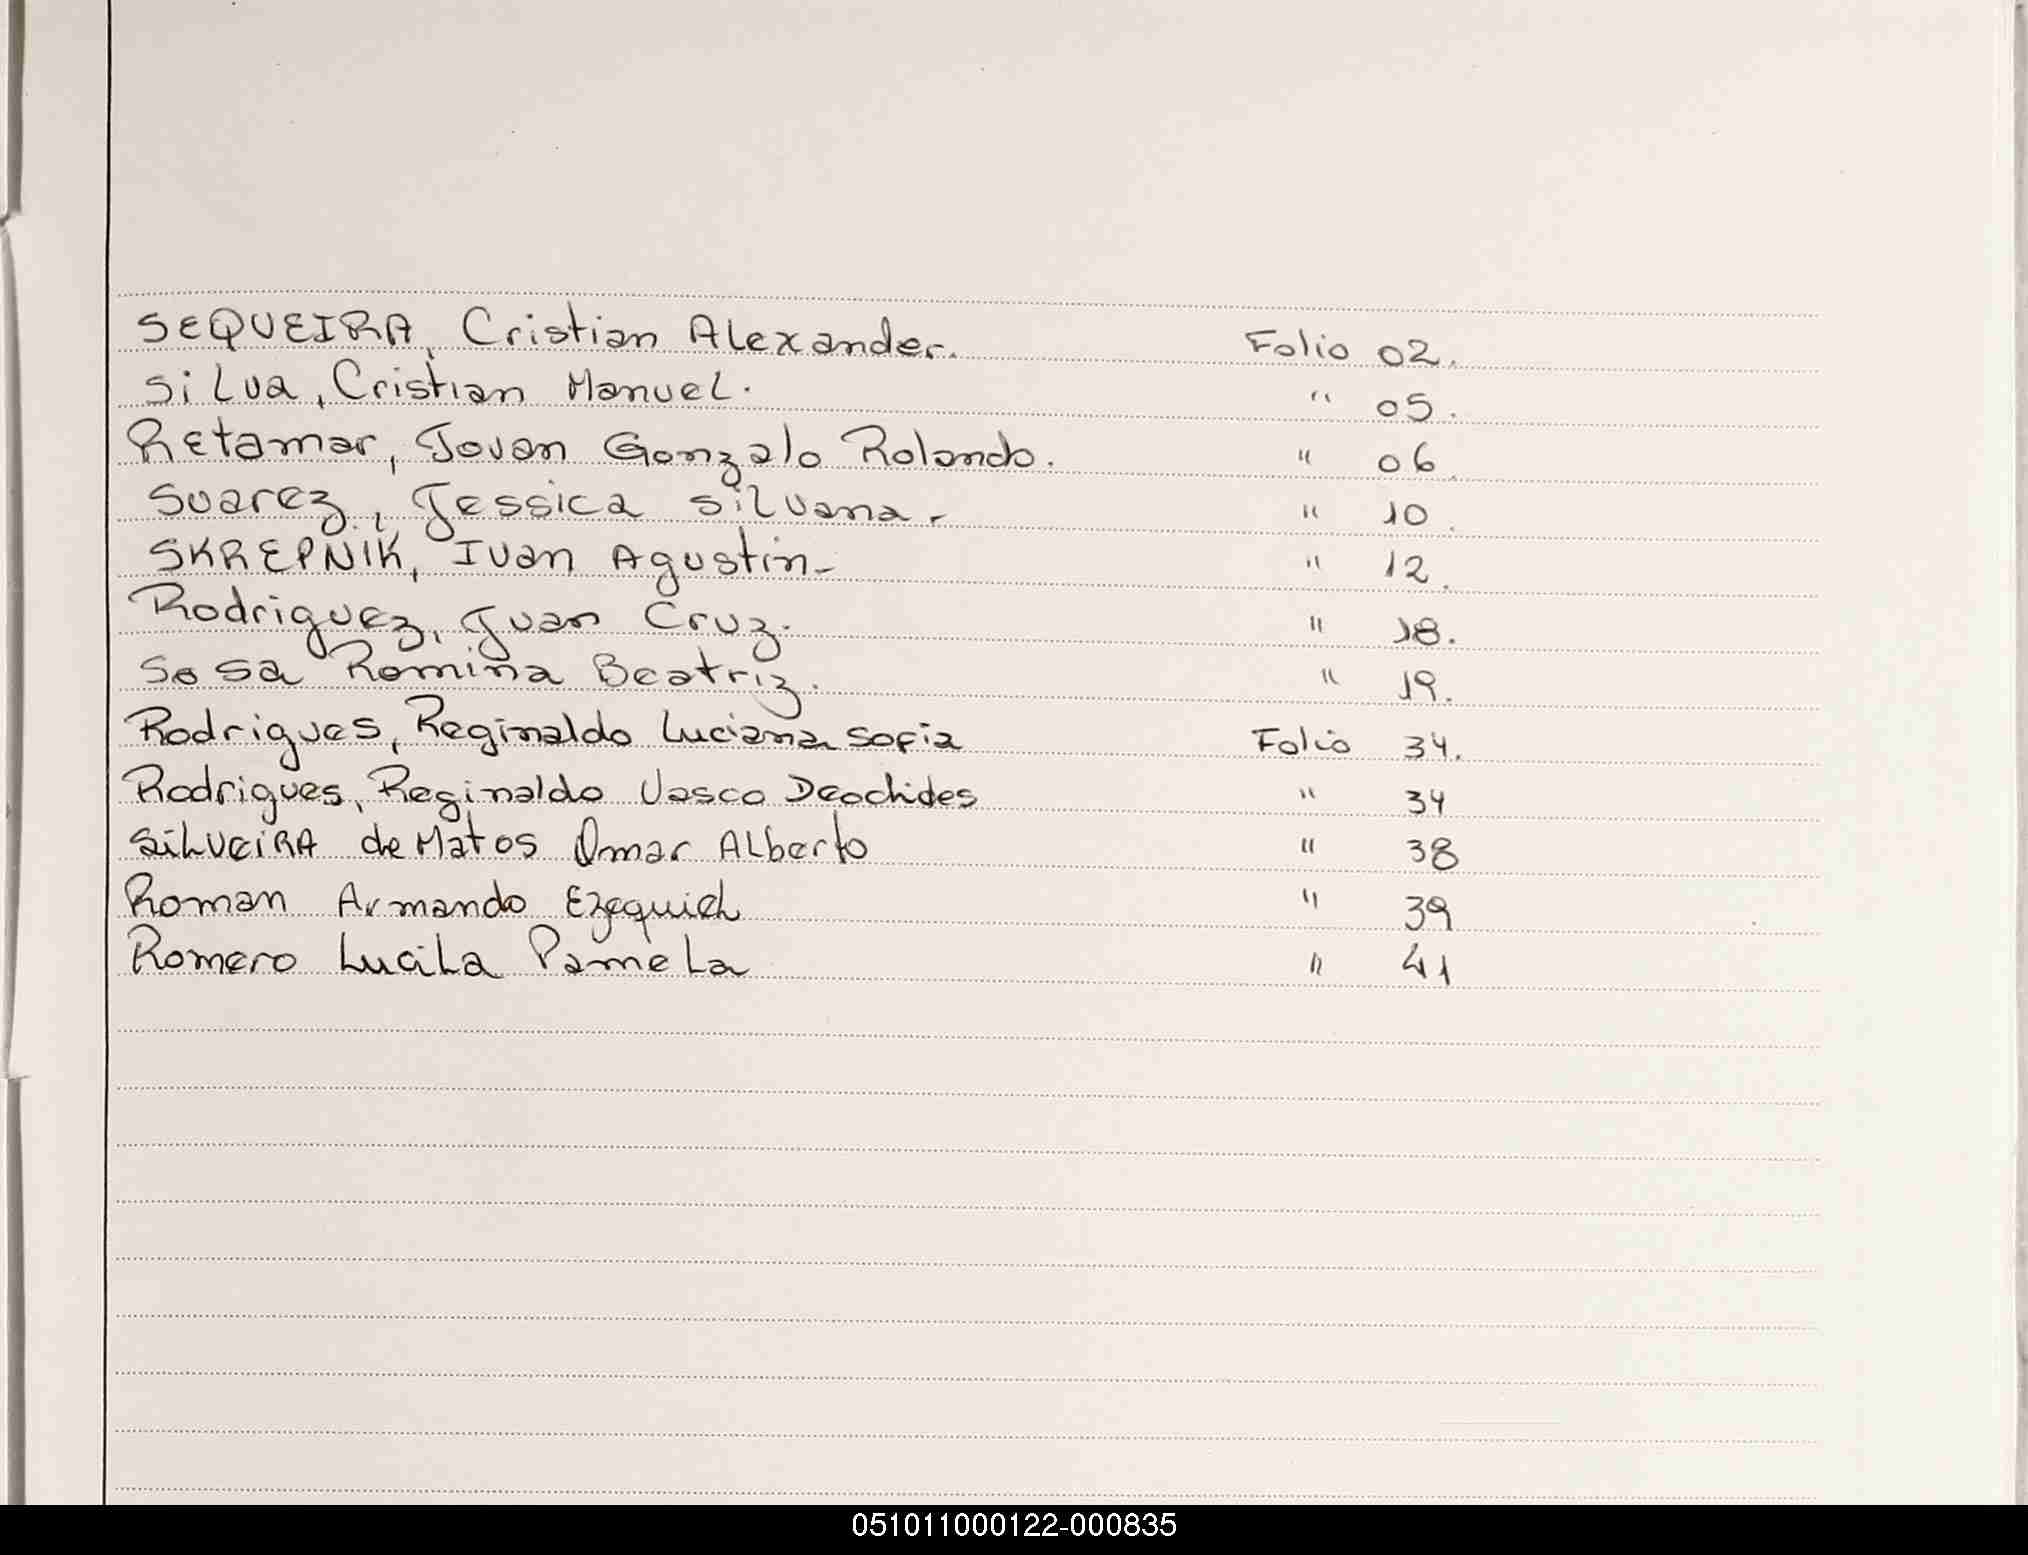 SEQUEIRA, Cristian Alexander. Folio 02.
Silva, Cristian Manuel. " 05.
Retamar, Jovan Gonzalo Rolando. " 06.
Suarez, Jessica Silvana. " 10.
SKREPNIK, Ivan Agustin- " 12.
Rodriguez, Juan Cruz. " 18.
Sosa Romina Beatriz. " 19.
Rodrigues, Reginaldo Luciana Sofia Folio 34.
Rodrigues, Reginaldo Vasco Deoclides " 34
SILVEIRA de Matos Omar Alberto " 38
Roman Armando Ezequiel " 39
Romero Lucila Pamela " 41
051011000122-000835